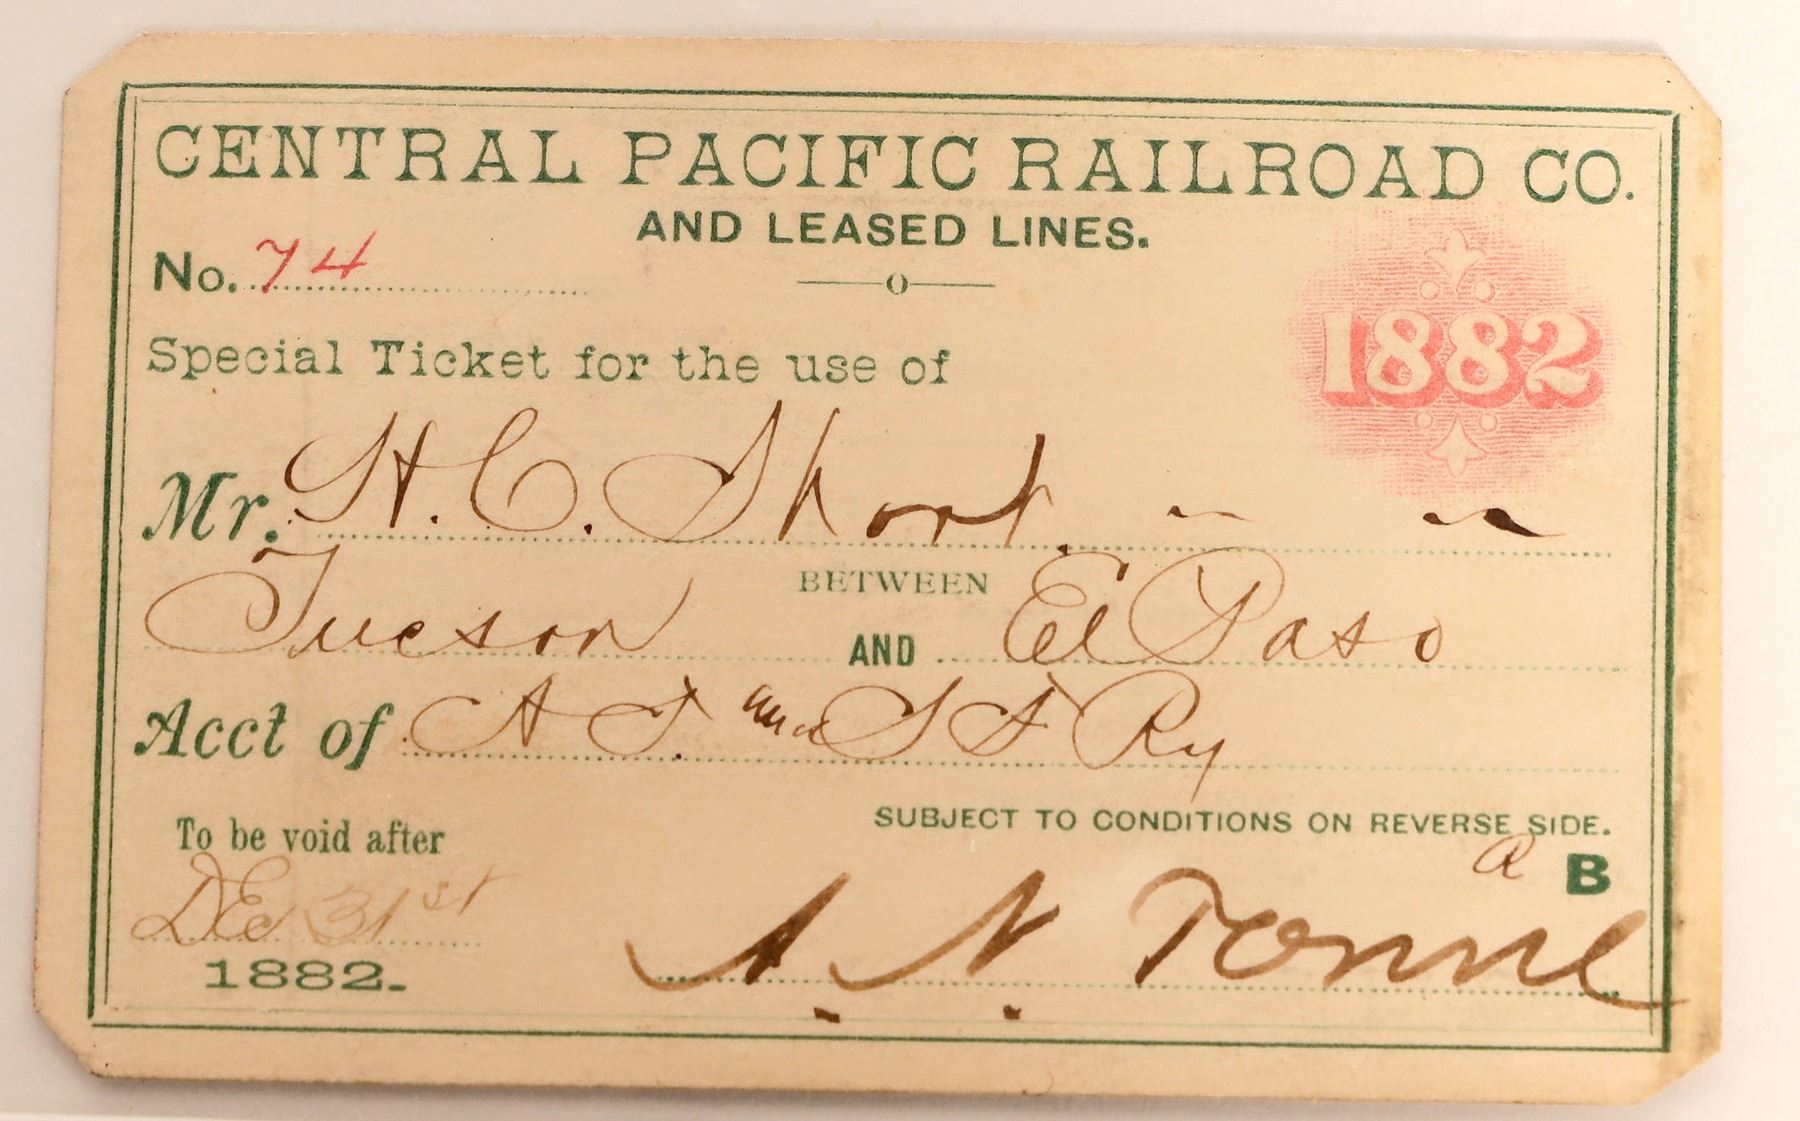 CENTRAL PACIFIC RAILROAD CO.
AND LEASED LINES.
No. 74
1882
Special Ticket for the use of
Mr. H. C. Short.
BETWEEN
Tucson AND El Paso
Acct of A T. and S F Ry
SUBJECT TO CONDITIONS ON REVERSE SIDE.
To be void after
B
DEc 31st
1882.
A. N. Towne